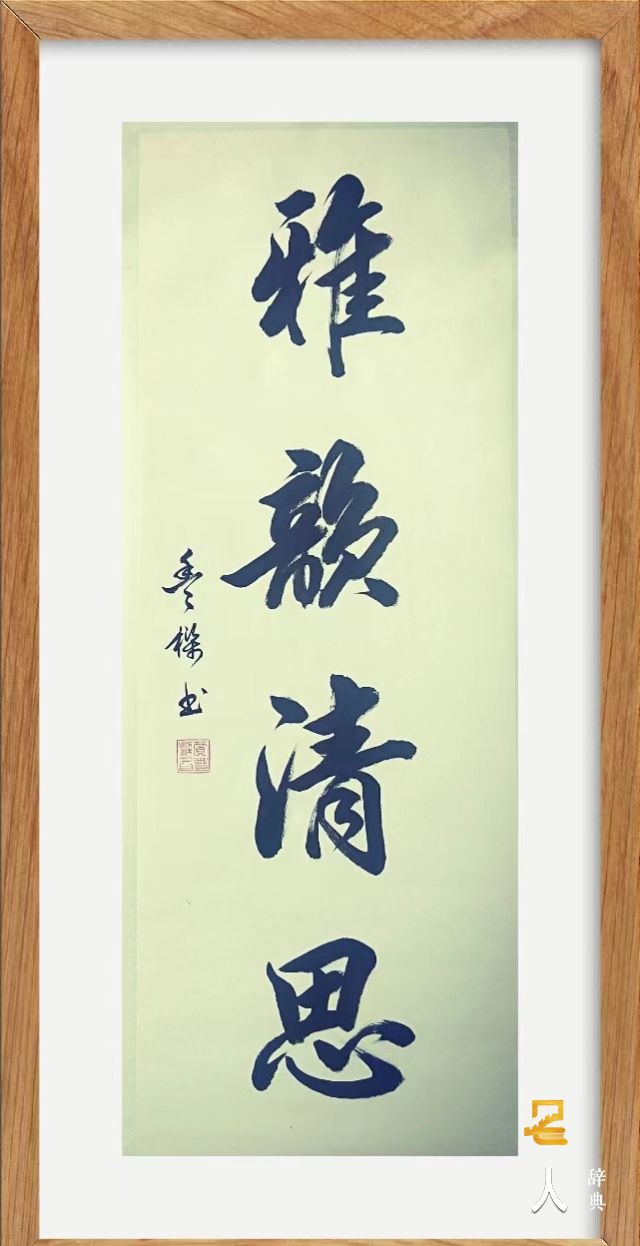 雅韵清思
书
人
辞典